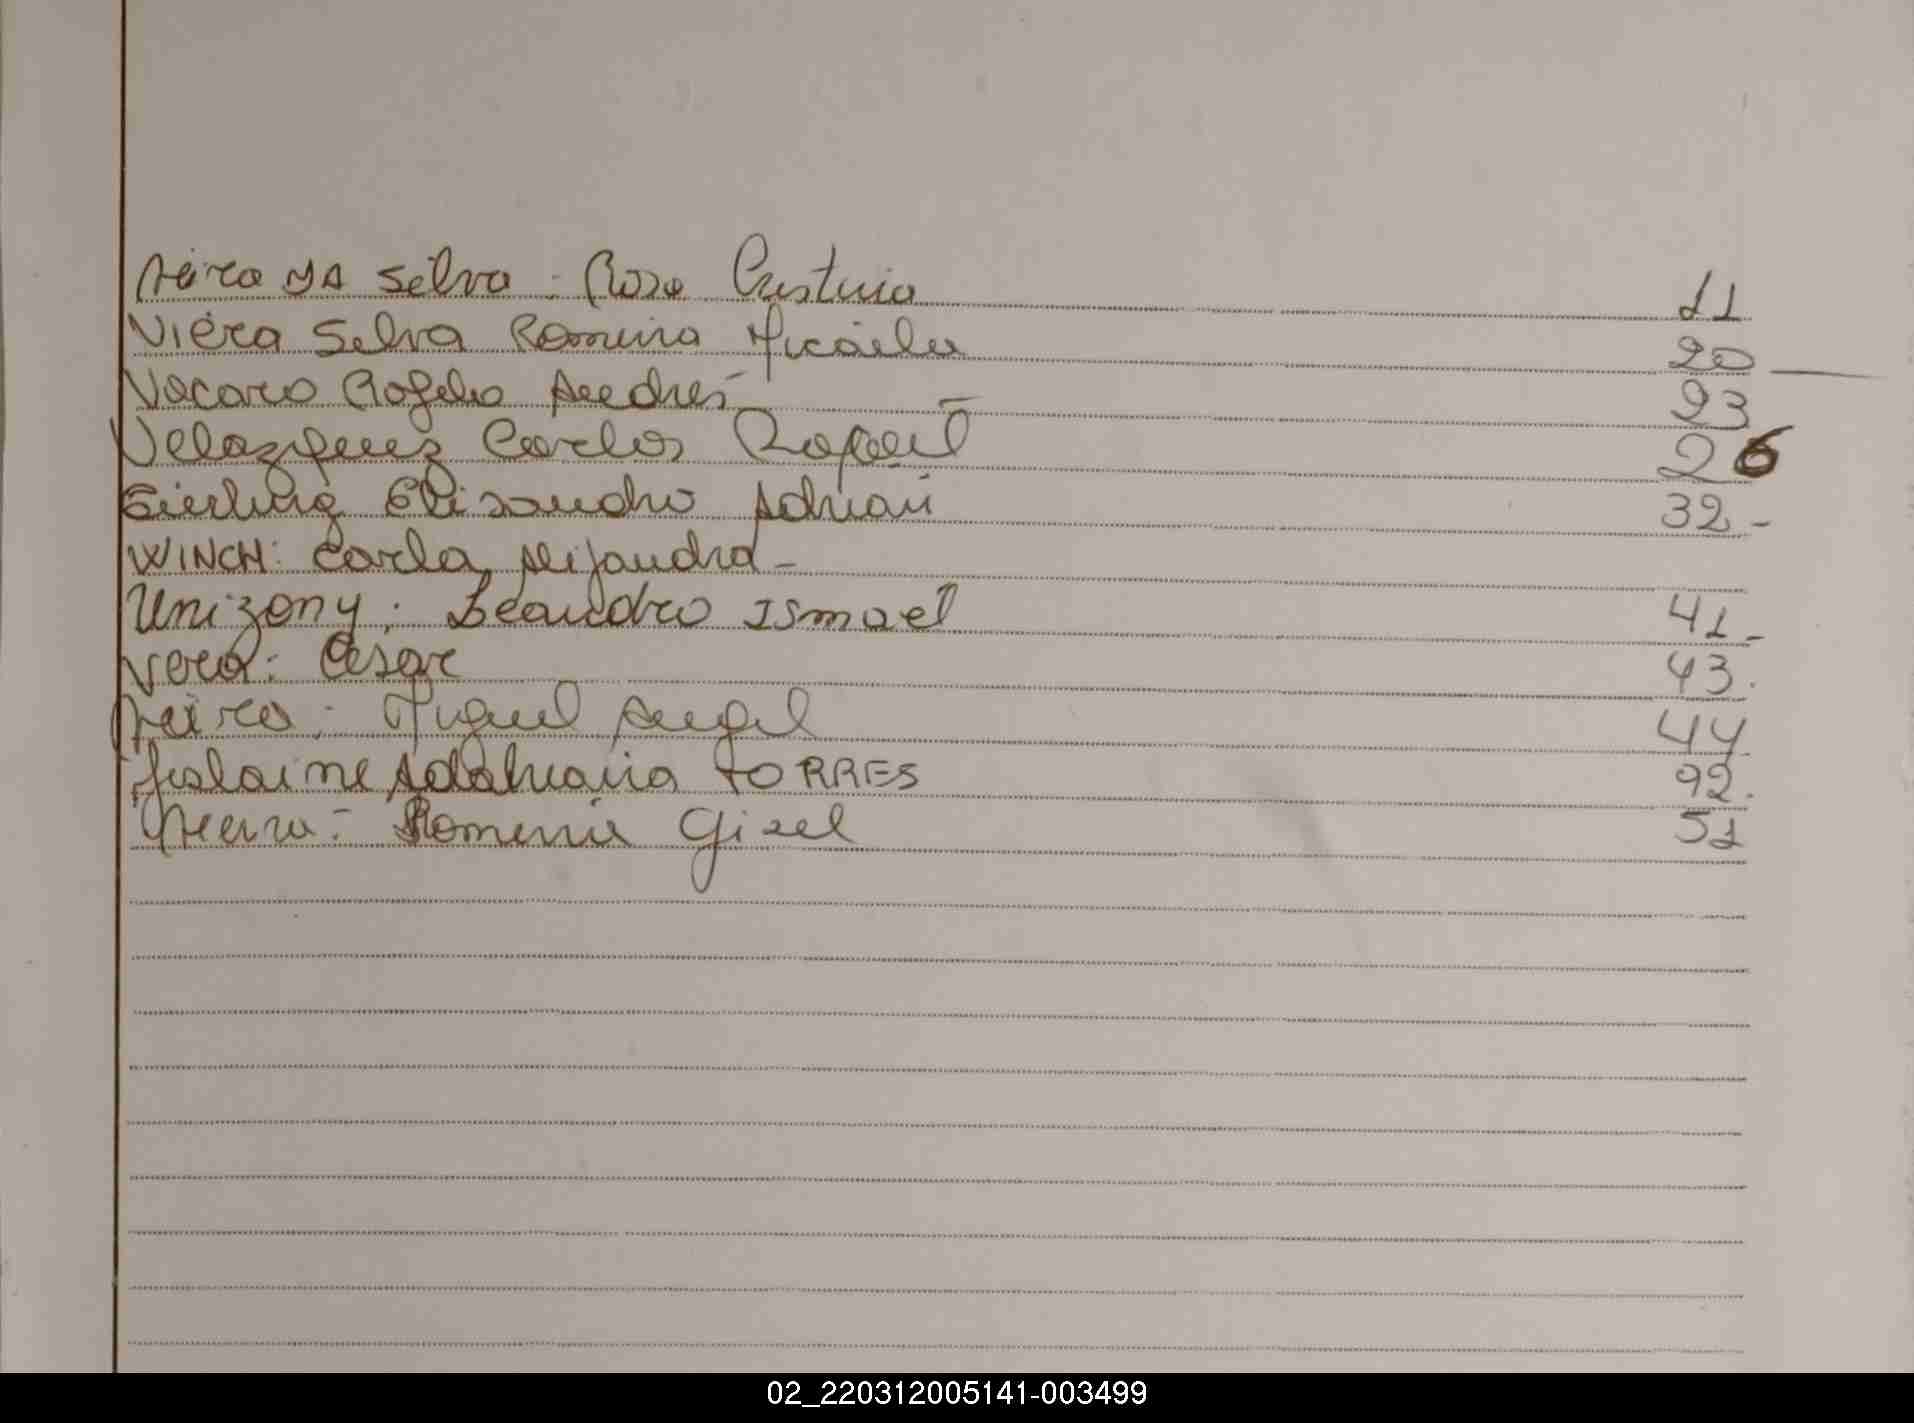 Neira DA Selva: Rosa Cristina 11
Viera Selva Romina Micaela 20
Vacaro Rogelio Andrés 23
Velazquez Carlos Rafael 26
Gierling Elisandro Adrian 32-
WINCH: Carla Alejandra-
Unizony: Leandro Ismael 41-
Vera: Cesar 43.
Neira: Miguel Angel 44
Adalueana TORRES 92.
Romina Gisel 51
02_220312005141-003499